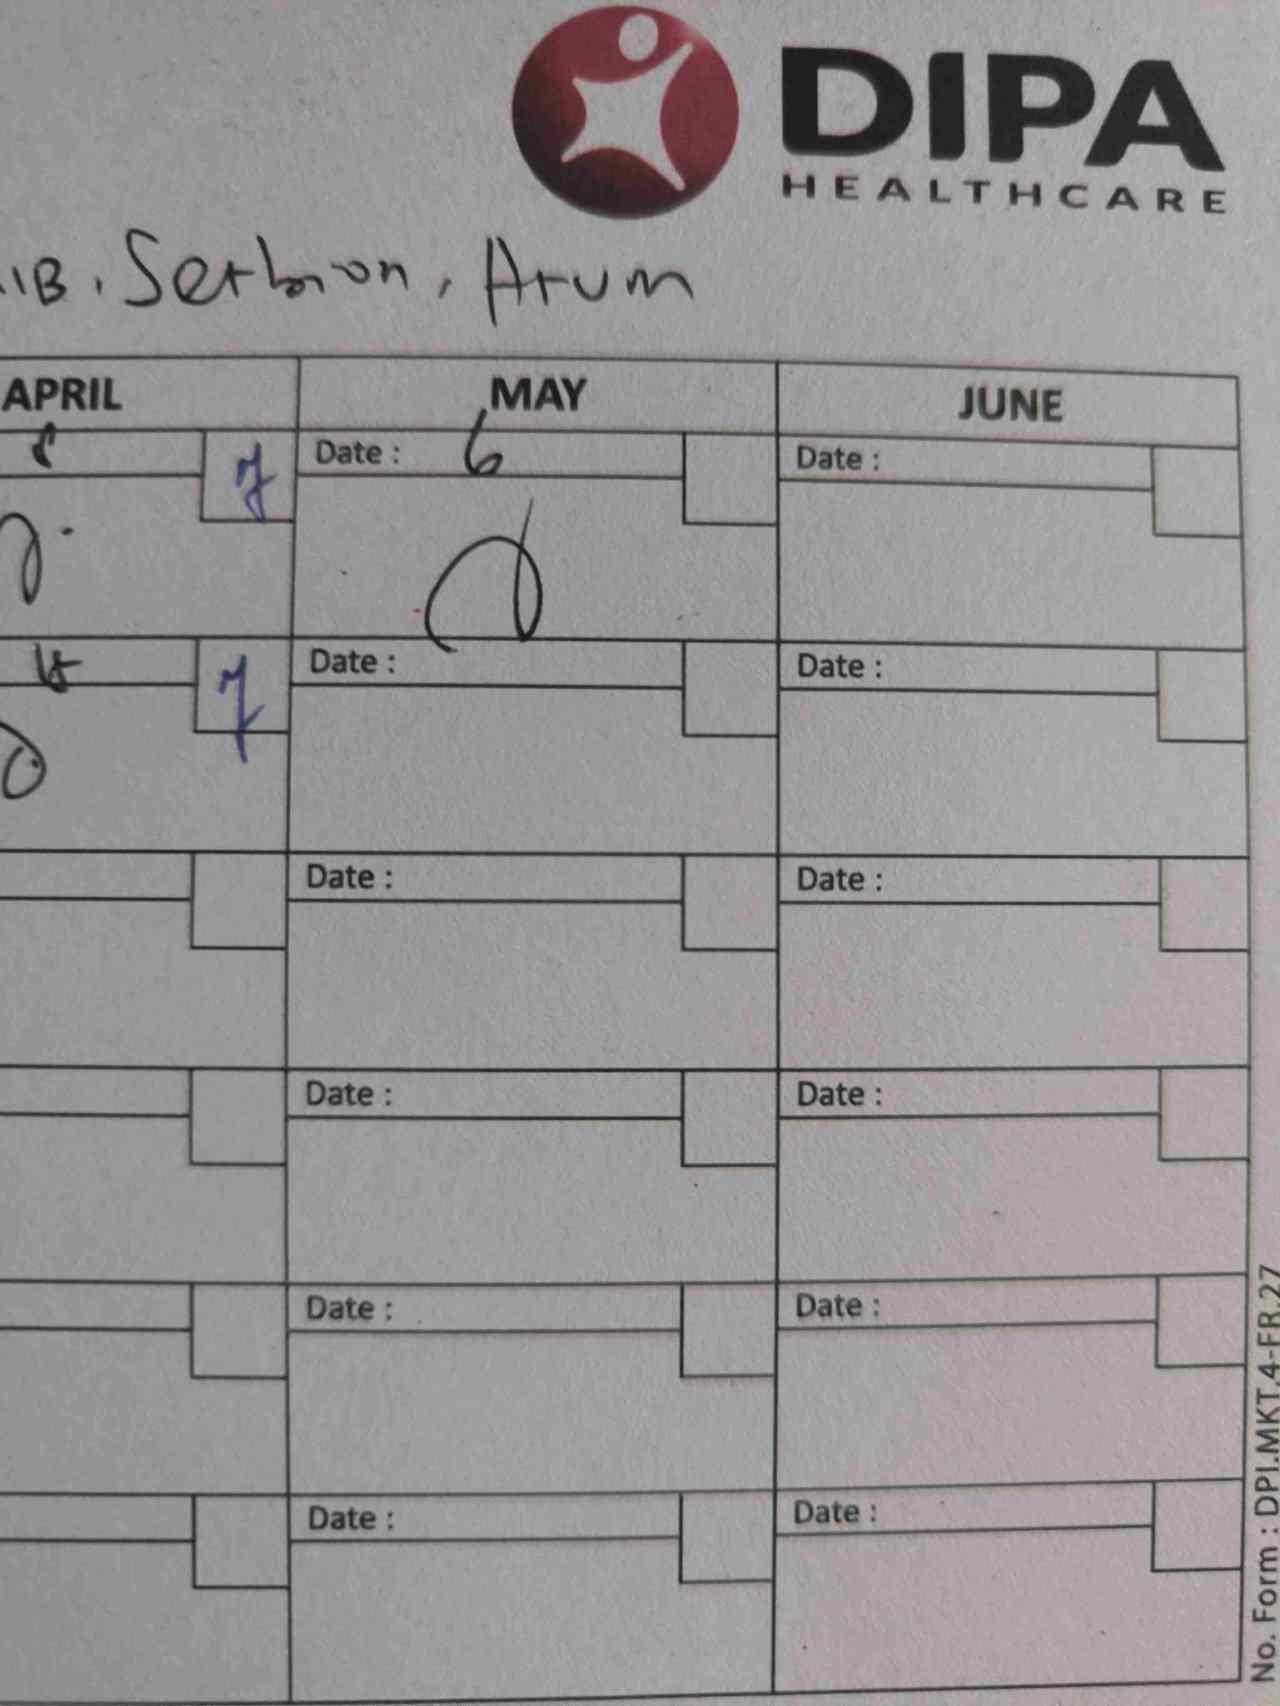 DIPA
HEALTHCARE
Arum
APRIL MAY JUNE
8 Date : 6 Date :
Date : Date :
Date : Date :
Date : Date :
Date : Date :
Date : Date :
No. Form : DPI.MKT.4-FR.27